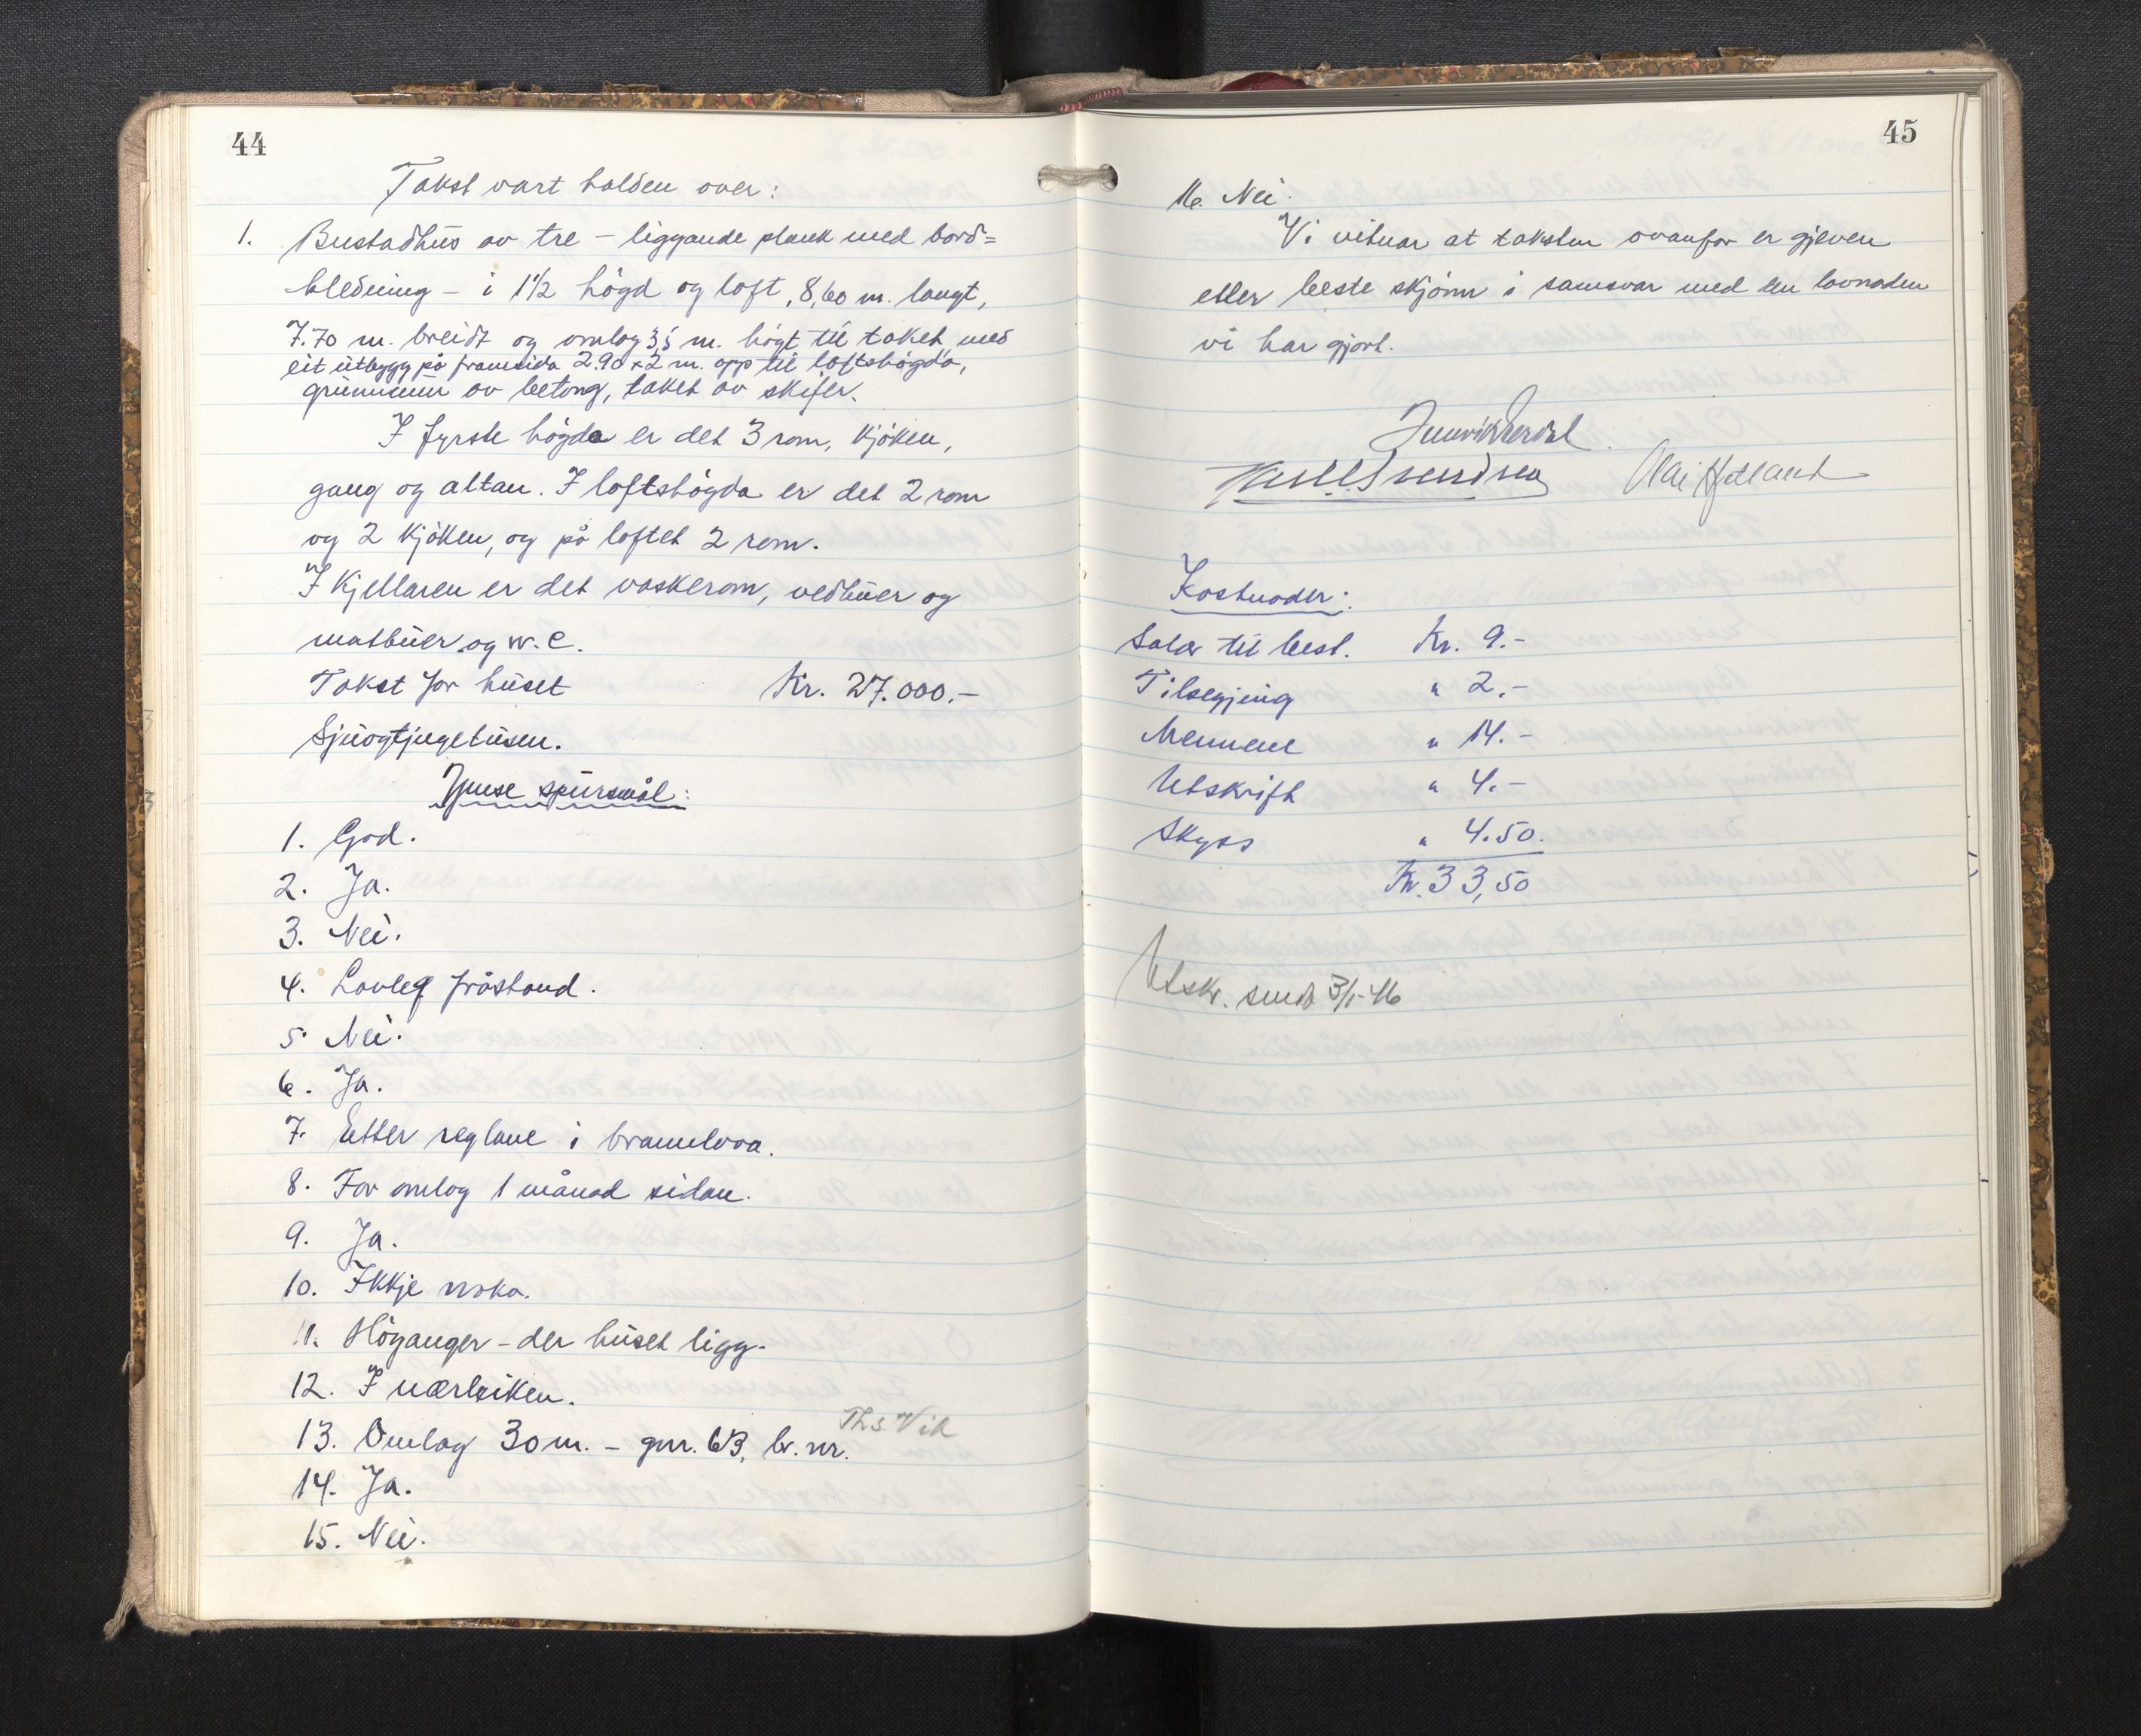 44
Takst vart halden over:
1. Bustadhus av tre – liggande plank med bord=
kledning – i 1½ högd og loft, 8,60 m. langt,
7.70 m. breidt og omlag 3,5 m. högt til taket, med
eit utbygg på framsida 2.90 x 2 m. opp til loftshögda,
grunnmur av betong, taket av skifer.
I fyrste högda er det 3 rom, kjöken,
gang og altan. I loftshögda er det 2 rom
og 2 kjöken, og på loftet 2 rom.
I kjellaren er det vaskerom, vedbuer og
matbuer og w.c.
Takst for huset Kr. 27.000.–
Sjuogtjugetusen.
Ymse spursmål:
1. God.
2. Ja.
3. Nei.
4. Lovleg fråstand.
5. Nei.
6. Ja.
7. Etter reglane i brannlova.
8. For omlag 1 månad sidan.
9. Ja.
10. Ikkje noka.
11. Höyanger – der huset ligg.
12. I nærleiken.
Ths. Vik
13. Omlag 30 m. – gnr. 63, br. nr.
14. Ja.
15. Nei.
45
16. Nei.
Vi vitnar at taksten ovanfor er gjeven
etter beste skjönn i samsvar med den lovnaden
vi har gjort.
Olai Hetland
Kostnader:
Salær til best. Kr. 9.–
Tilsegjing " 2.–
Mennene " 14.–
Utskrift " 4.–
Skyss " 4.50.
Kr. 33,50
Utskr. sendt 3/1-46